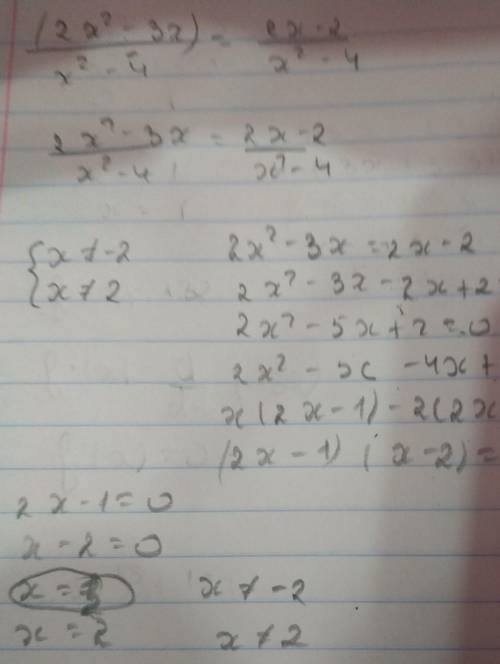 (2x² - 3x) / x² - 4 = 2x - 2 / x² - 4
2x² - 3x / x² - 4 = 2x - 2 / x² - 4
{ x ≠ -2 2x² - 3x = 2x - 2
{ x ≠ 2 2x² - 3x - 2x + 2
2x² - 5x + 2 = 0
2x² - x - 4x +
x(2x - 1) - 2(2x
(2x - 1) (x - 2) =
2x - 1 = 0
x - 2 = 0
x = x ≠ -2
x = 2 x ≠ 2